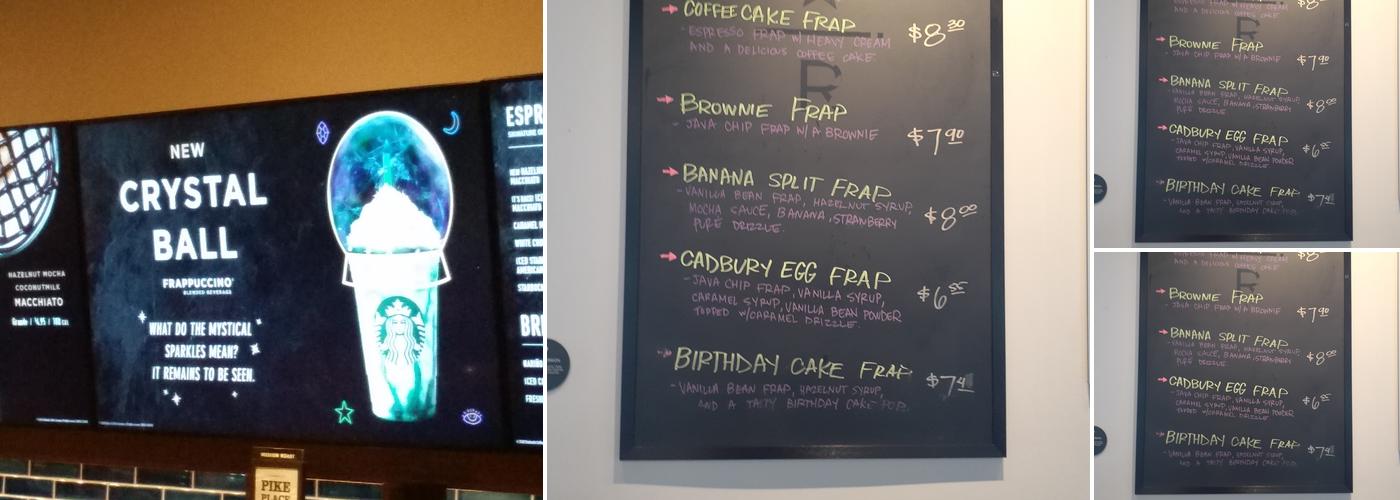 NEW
CRYSTAL
BALL
FRAPPUCCINO
BLENDED BEVERAGE
WHAT DO THE MYSTICAL
SPARKLES MEAN?
IT REMAINS TO BE SEEN.
HAZELNUT MOCHA
COCONUTMILK
MACCHIATO
MEDIUM ROAST
PIKE
PLACE
COFFEE CAKE FRAP $8.30
- ESPRESSO FRAP W/ HEAVY CREAM
AND A DELICIOUS COFFEE CAKE.
R
BROWNIE FRAP
- JAVA CHIP FRAP W/A BROWNIE $7.90
BANANA SPLIT FRAP
- VANILLA BEAN FRAP, HAZELNUT SYRUP,
MOCHA SAUCE, BANANA, STRAWBERRY $8.00
PURÉ DRIZZLE.
CADBURY EGG FRAP
- JAVA CHIP FRAP, VANILLA SYRUP, $6.55
CARAMEL SYRUP, VANILLA BEAN POWDER
TOPPED W/CARAMEL DRIZZLE.
BIRTHDAY CAKE FRAP
- VANILLA BEAN FRAP, HAZELNUT SYRUP,
AND A TASTY BIRTHDAY CAKE POP.
AND A DELICIOUS COFFEE CAKE.
R
BROWNIE FRAP
- JAVA CHIP FRAP W/A BROWNIE $7.90
BANANA SPLIT FRAP
- VANILLA BEAN FRAP, HAZELNUT SYRUP,
MOCHA SAUCE, BANANA, STRAWBERRY $8.00
PURÉ DRIZZLE.
CADBURY EGG FRAP
- JAVA CHIP FRAP, VANILLA SYRUP, $6.55
CARAMEL SYRUP, VANILLA BEAN POWDER
TOPPED W/CARAMEL DRIZZLE.
BIRTHDAY CAKE FRAP
- VANILLA BEAN FRAP, HAZELNUT SYRUP,
AND A TASTY BIRTHDAY CAKE POP.
AND A DELICIOUS COFFEE CAKE.
R
BROWNIE FRAP
- JAVA CHIP FRAP W/A BROWNIE $7.90
BANANA SPLIT FRAP
- VANILLA BEAN FRAP, HAZELNUT SYRUP,
MOCHA SAUCE, BANANA, STRAWBERRY $8.00
PURÉ DRIZZLE.
CADBURY EGG FRAP
- JAVA CHIP FRAP, VANILLA SYRUP, $6.55
CARAMEL SYRUP, VANILLA BEAN POWDER
TOPPED W/CARAMEL DRIZZLE.
BIRTHDAY CAKE FRAP
- VANILLA BEAN FRAP, HAZELNUT SYRUP,
AND A TASTY BIRTHDAY CAKE POP.